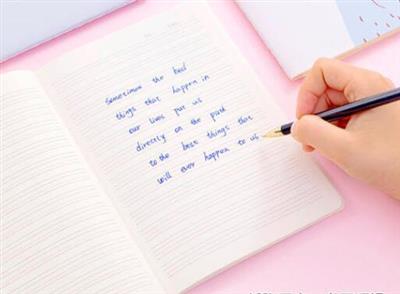 Sometimes the bad
things that happen in
our lives put us
directly on the path
to the best things that
will ever happen to us